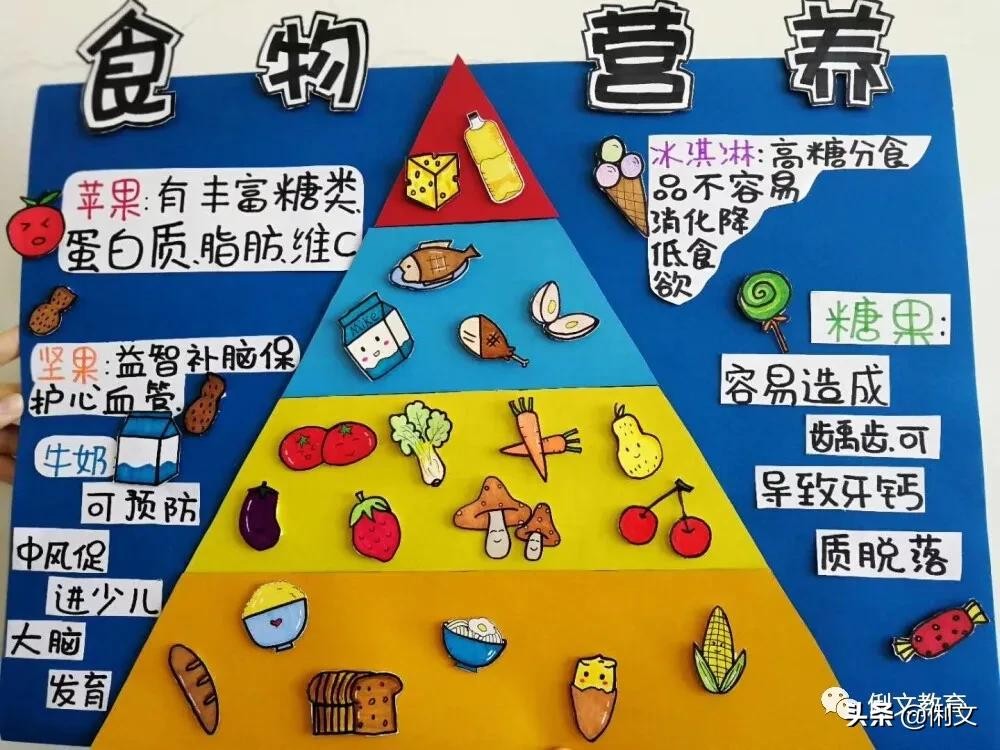 食物营养
苹果:有丰富糖类、
蛋白质、脂肪、维C
坚果:益智补脑保
护心血管、
牛奶
可预防
中风促
进少儿
大脑
发育
Milke
冰淇淋:高糖分食
品不容易
消化降
低食
欲
糖果:
容易造成
龋齿、可
导致牙钙
质脱落
俐文教育
头条@俐文